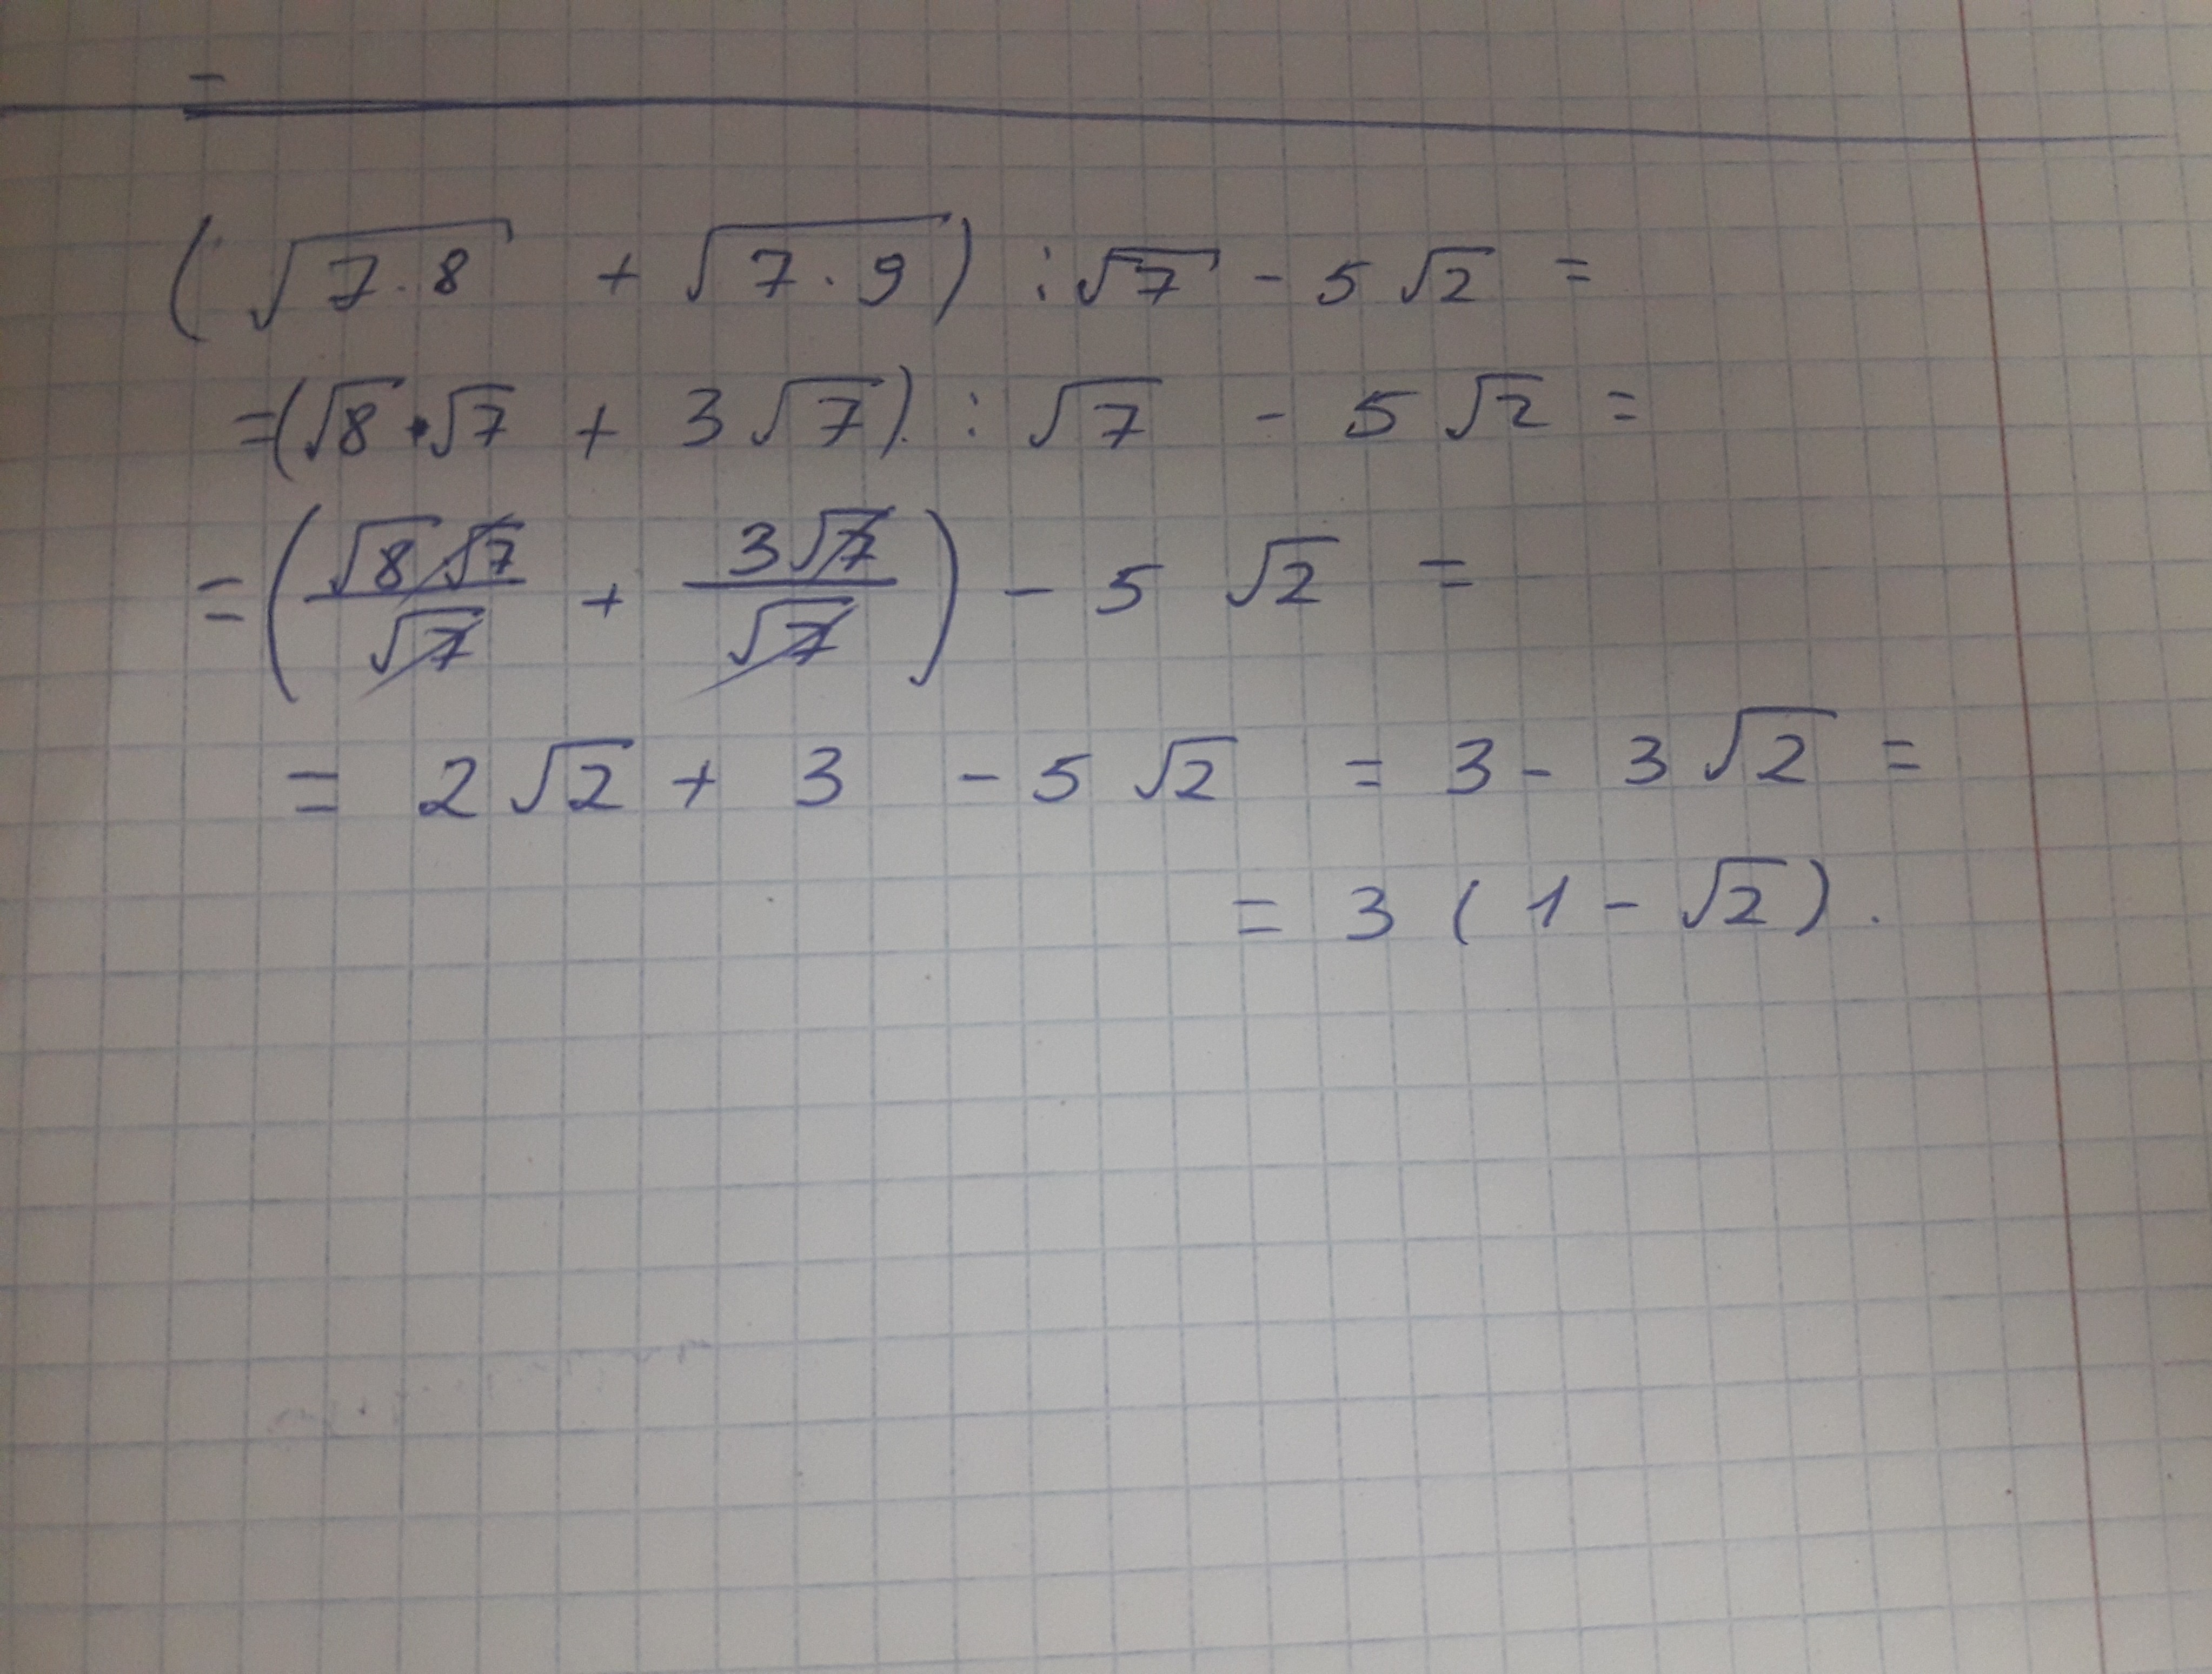 (√7·8 + √7·9) : √7 - 5√2 =
=(√8·√7 + 3√7) : √7 - 5√2 =
=(√8√7/√7 + 3√7/√7) - 5√2 =
= 2√2 + 3 - 5√2 = 3 - 3√2 =
= 3(1 - √2).